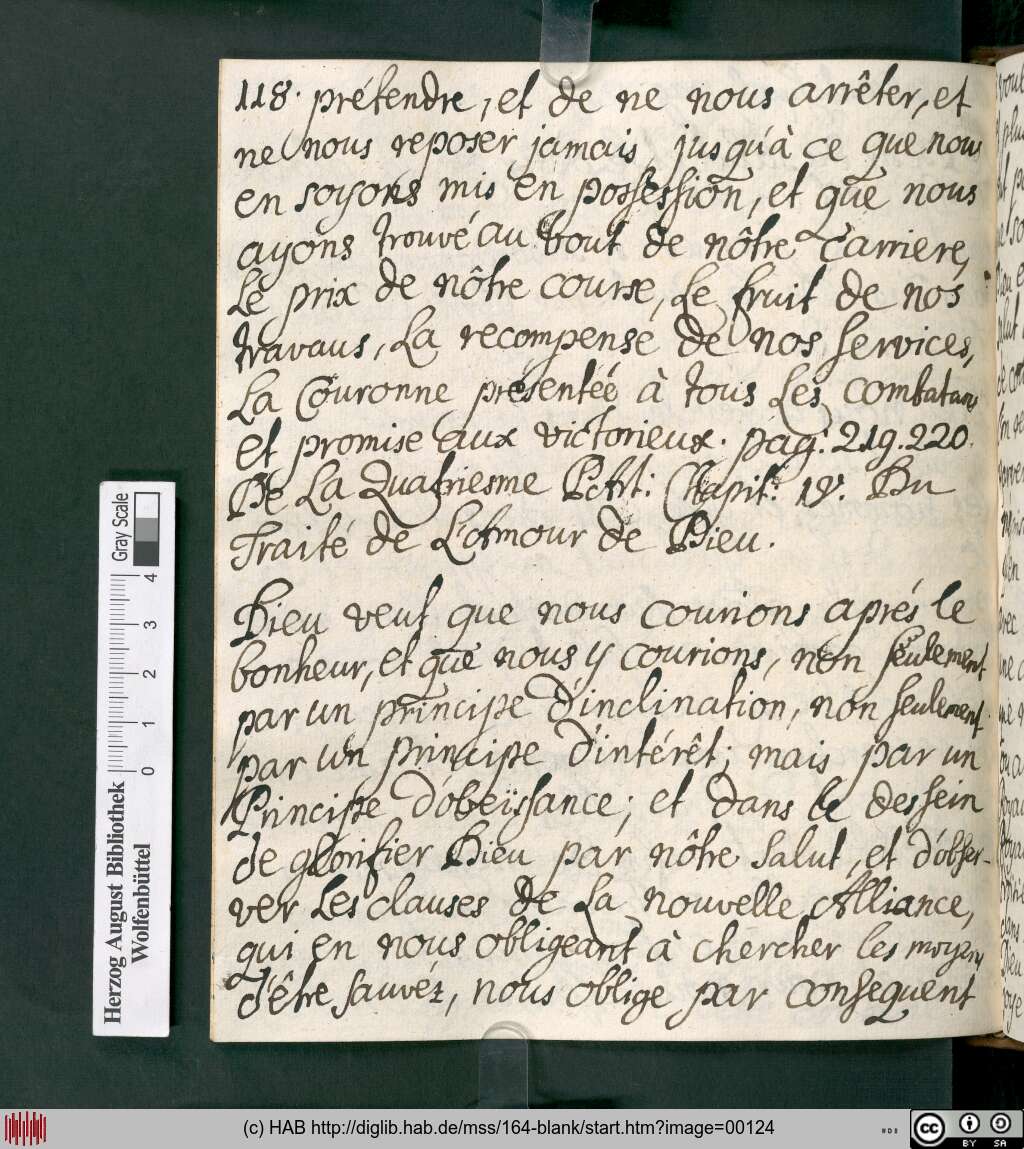 118. prétendre, et de ne nous arrêter, et
ne nous reposer jamais, jusqu'à ce que nous
en soyons mis en possession, et que nous
ayons trouvé au bout de nôtre Carriere,
Le prix de nôtre course, Le fruit de nos
travaus, La recompense de nos services,
La Couronne presentée à tous Les combatans
et promise aux victorieux. pag. 219. 220.
De La Quatriesme Part: Chapit: 19. Du
Traité de L'Amour de Dieu.
Dieu veut que nous courions aprés le
bonheur, et que nous y courions, non seulement
par un principe d'inclination, non seulement
par un principe d'intérêt; mais par un
Principe d'obeïssance; et dans le dessein
de glorifier Dieu par nôtre salut, et d'obser-
ver Les clauses de La nouvelle Alliance,
qui en nous obligeant à chercher les moyens
d'être sauvéz, nous oblige par consequent
Gray Scale
4 3 2 1 0
Herzog August Bibliothek
Wolfenbüttel
(c) HAB http://diglib.hab.de/mss/164-blank/start.htm?image=00124
cc BY SA